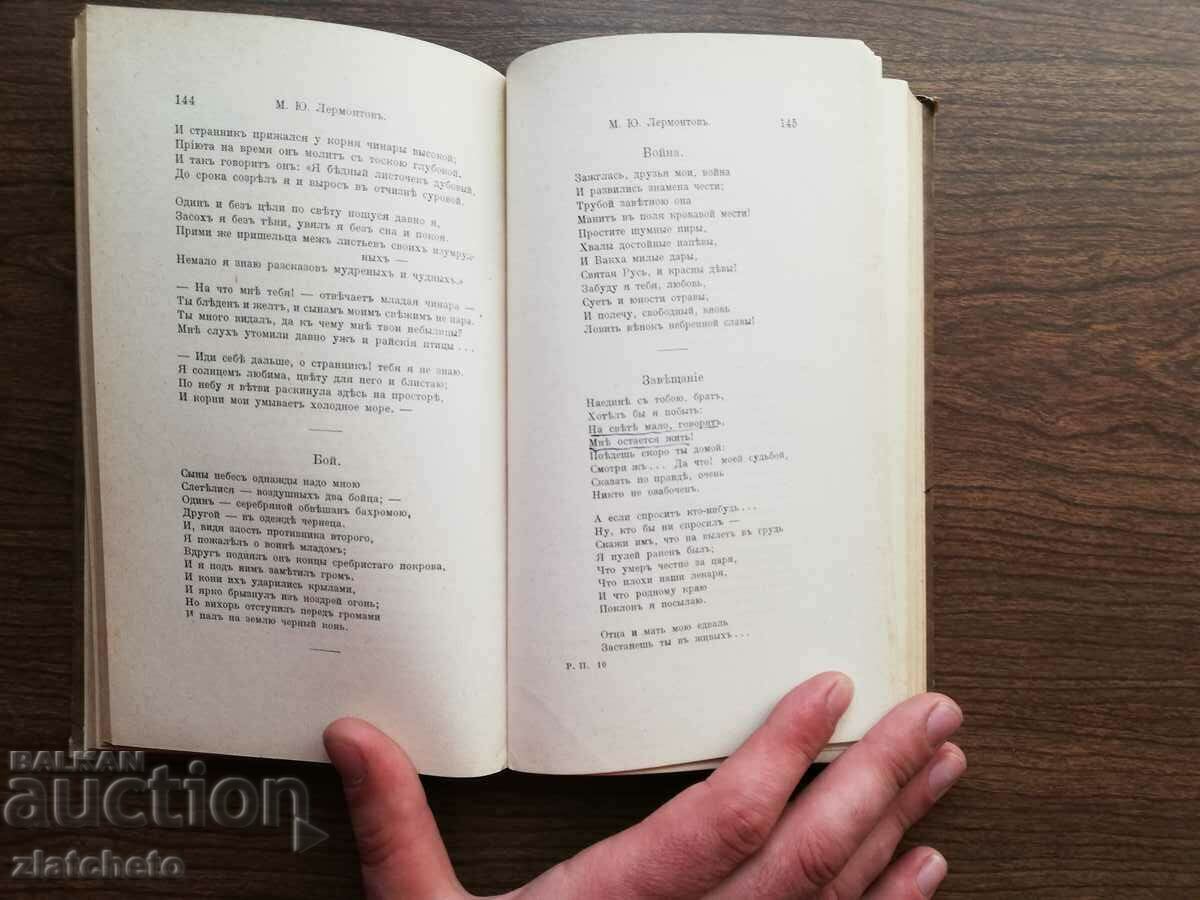 144
М. Ю. Лермонтовъ.
И странник прижался у корня чинары высокой;
Пріюта на время онъ молит съ тоскою глубокой,
И такъ говорит онъ: «Я бѣдный листочек дубовый,
До срока созрѣл я и вырос въ отчизнѣ суровой.
Один и без цѣли по свѣту ношуся давно я,
Засох я без тѣни, увял я без сна и покоя.
Прими же пришельца меж листьев своих изумруд-
ных —
Немало я знаю разсказов мудреных и чудных.»
— На что мнѣ тебя! — отвѣчает младая чинара —
Ты блѣден и желт, и сынам моим свѣжим не пара.
Ты много видал, да къ чему мнѣ твои небылицы?
Мнѣ слух утомили давно уж и райскія птицы ...
— Иди себѣ дальше, о странник! тебя я не знаю.
Я солнцем любима, цвѣту для него и блистаю;
По небу я вѣтви раскинула здѣсь на просторѣ,
И корни мои умывает холодное море. —
Бой.
Сыны небес однажды надо мною
Слетѣлися — воздушных два бойца; —
Один — серебряной обвѣшан бахромою,
Другой — въ одеждѣ чернеца.
И, видя злость противника второго,
Я пожалѣл о воинѣ младом;
Вдруг поднял он концы сребристаго покрова,
И я под ним замѣтил гром.
И кони их ударились крылами,
И ярко брызнул из ноздрей огонь;
Но вихорь отступил перед громами
И пал на землю черный конь.
М. Ю. Лермонтовъ.
145
Война.
Зажглась, друзья мои, война
И развились знамена чести;
Трубой завѣтною она
Манит въ поля кровавой мести!
Простите шумные пиры,
Хвалы достойные напѣвы,
И Вакха милые дары,
Святая Русь, и красны дѣвы!
Забуду я тебя, любовь,
Сует и юности отравы,
И полечу, свободный, вновь
Ловить вѣнок небренной славы!
Завѣщаніе
Наединѣ съ тобою, брат,
Хотѣл бы я побыть:
На свѣтѣ мало, говорят,
Мнѣ остается жить!
Поѣдешь скоро ты домой:
Смотри ж ... Да что! моей судьбой,
Сказать по правдѣ, очень
Никто не озабочен.
А если спросит кто-нибудь ...
Ну, кто бы ни спросил —
Скажи им, что на вылет въ грудь
Я пулей ранен был;
Что умер честно за царя,
Что плохи наши лекаря,
И что родному краю
Поклон я посылаю.
Отца и мать мою едваль
Застанешь ты въ живых ...
Р. П. 10
BALKAN
auction
zlatcheto